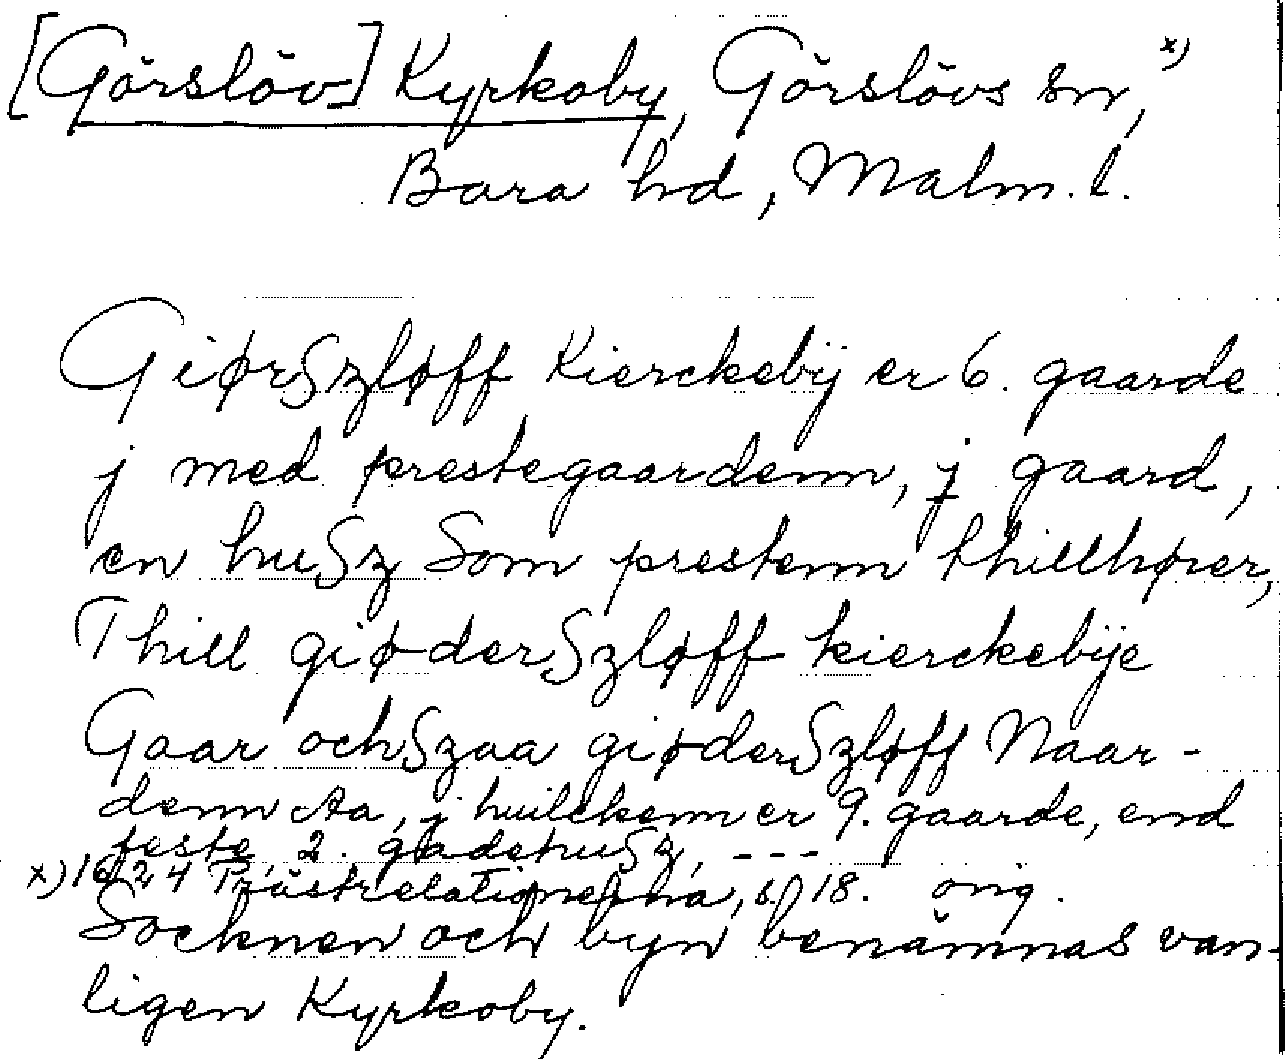 [Görslöv] Kyrkoby, Görslövs sn, x)
Bara hd, Malm. l.
GiørSzløff Kierckebÿ er 6. gaarde
j med prestegaardenn, j gaard,
en huSz Som prestenn thillhører,
Thill giøderSzløff kierckebÿe
Gaar ochSzaa giøderSzløff Naar-
denn Aa, j huilckenn er 9. gaarde, end
feste, 2. gadehuSz, ---
1624 Prästrelationerna, s. 18. orig.
x) Socknen och byn benämnas van-
ligen Kyrkoby.